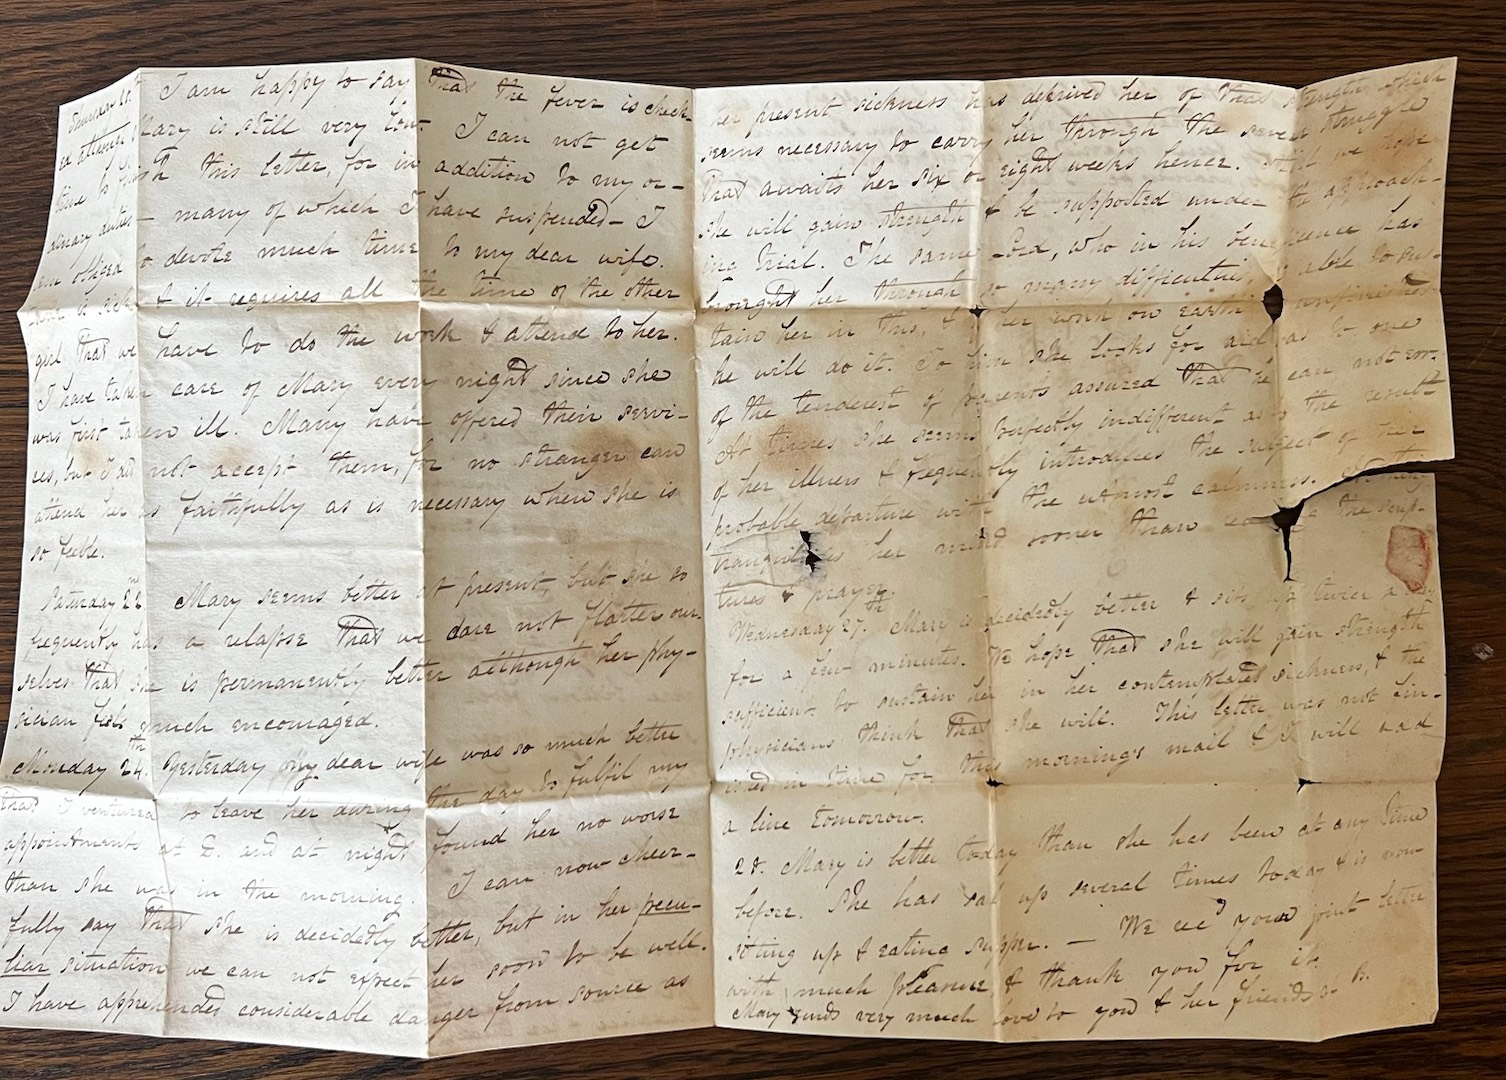 I am happy to say that the fever is check-
ed although Mary is still very low. I can not get
time to finish this letter, for in addition to my or-
dinary duties — many of which I have suspended — I
am obliged to devote much time to my dear wife.
is sick & it requires all the time of the other
girl that we have to do the work & attend to her.
I have taken care of Mary every night since she
was first taken ill. Many have offered their servi-
ces, but I do not accept them, for no stranger can
attend her as faithfully as is necessary when she is
so feeble.
Saturday 22nd Mary seems better at present, but she so
frequently has a relapse that we dare not flatter our-
selves that she is permanently better although her phy-
sician feels much encouraged.
Monday 24th. Yesterday my dear wife was so much better
that I ventured to leave her during the day to fulfil my
appointments at E. and at night found her no worse
than she was in the morning. I can now cheer-
fully say that she is decidedly better, but in her pecu-
liar situation we can not expect her soon to be well.
I have apprehended considerable danger from source as
her present sickness has deprived her of that strength which
seems necessary to carry her through the severe struggle
that awaits her six or eight weeks hence. Still we hope
she will gain strength & be supported under the approach-
ing trial. The same God, who in his beneficence has
brought her through so many difficulties, is able to sus-
tain her in this, & if her work on earth is unfinished
he will do it. To him she looks for aid as to one
of the tenderest of parents assured that he can not err.
At times she seems perfectly indifferent as to the result
of her illness & frequently introduces the subject of her
probable departure with the utmost calmness. Nothing
tranquilizes her mind sooner than the scrip-
tures & prayer.
Wednesday 27th. Mary is decidedly better & sits up twice a day
for a few minutes. We hope that she will gain strength
sufficient to sustain her in her contemplated sickness, & the
physicians think that she will. This letter was not fin-
ished in time for this morning's mail & I will add
a line tomorrow.
28. Mary is better today than she has been at any time
before. She has sat up several times today & is now
sitting up & eating supper. — We recd your joint letter
with much pleasure, & thank you for it.
Mary sends very much love to you & her friends. B.